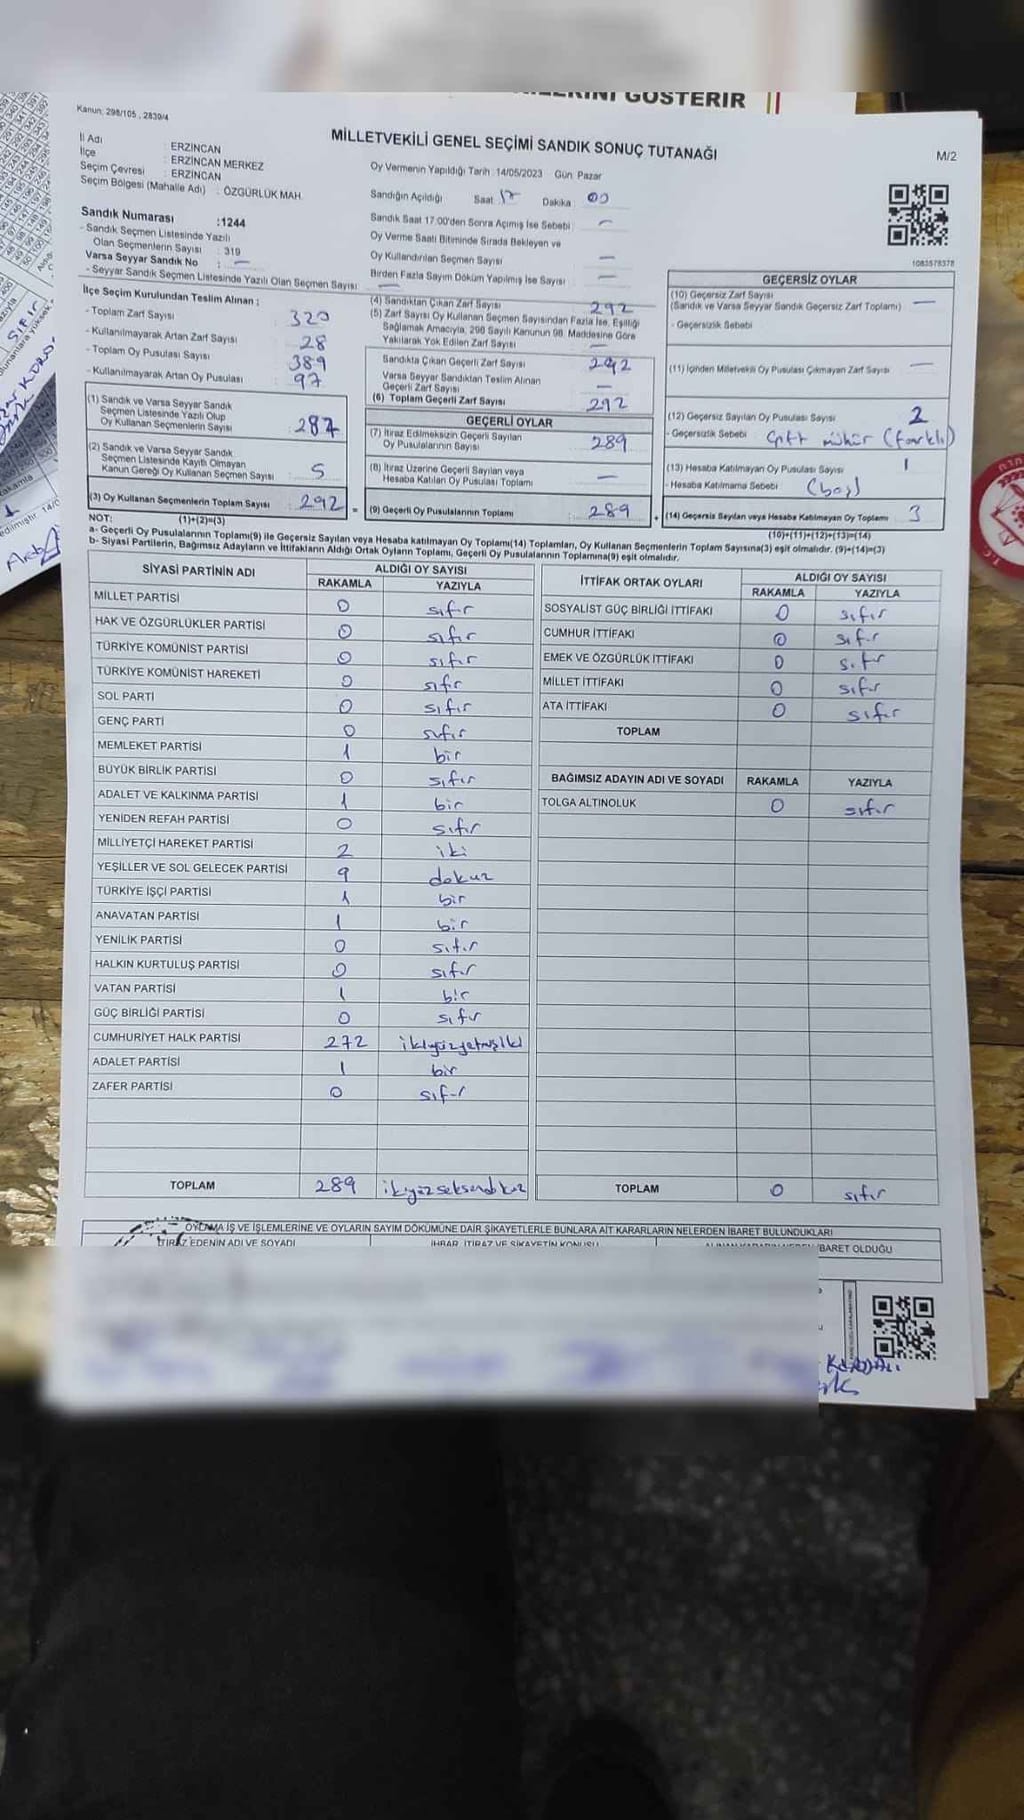 GÖSTERİR
Kanun: 298/105 , 2839/4
MİLLETVEKİLİ GENEL SEÇİMİ SANDIK SONUÇ TUTANAĞI
M/2
İl Adı : ERZİNCAN
İlçe : ERZİNCAN MERKEZ
Seçim Çevresi : ERZİNCAN
Seçim Bölgesi (Mahalle Adı) : ÖZGÜRLÜK MAH.
Oy Vermenin Yapıldığı Tarih : 14/05/2023 Gün: Pazar
Sandığın Açıldığı Saat 17 Dakika : 00
Sandık Numarası :1244
- Sandık Seçmen Listesinde Yazılı
Olan Seçmenlerin Sayısı : 319
Varsa Seyyar Sandık No : —
- Seyyar Sandık Seçmen Listesinde Yazılı Olan Seçmen Sayısı: —
Sandık Saat 17.00'den Sonra Açımış İse Sebebi : —
Oy Verme Saati Bitiminde Sırada Bekleyen ve
Oy Kullandırılan Seçmen Sayısı : —
Birden Fazla Sayım Döküm Yapılmış İse Sayısı : —
1083578378
İlçe Seçim Kurulundan Teslim Alınan :
- Toplam Zarf Sayısı : 320
- Kullanılmayarak Artan Zarf Sayısı : 28
- Toplam Oy Pusulası Sayısı : 389
- Kullanılmayarak Artan Oy Pusulası : 97
(1) Sandık ve Varsa Seyyar Sandık
Seçmen Listesinde Yazılı Olup
Oy Kullanan Seçmenlerin Sayısı : 287
(2) Sandık ve Varsa Seyyar Sandık
Seçmen Listesinde Kayıtlı Olmayan
Kanun Gereği Oy Kullanan Seçmen Sayısı : 5
(3) Oy Kullanan Seçmenlerin Toplam Sayısı : 292 =
(4) Sandıktan Çıkan Zarf Sayısı : 292
(5) Zarf Sayısı Oy Kullanan Seçmen Sayısından Fazla İse, Eşitliği
Sağlamak Amacıyla, 298 Sayılı Kanunun 98. Maddesine Göre
Yakılarak Yok Edilen Zarf Sayısı : —
Sandıkta Çıkan Geçerli Zarf Sayısı : 292
Varsa Seyyar Sandıktan Teslim Alınan
Geçerli Zarf Sayısı : —
(6) Toplam Geçerli Zarf Sayısı : 292
GEÇERLİ OYLAR
(7) İtiraz Edilmeksizin Geçerli Sayılan
Oy Pusulalarının Sayısı : 289
(8) İtiraz Üzerine Geçerli Sayılan veya
Hesaba Katılan Oy Pusulaları Toplamı : —
(9) Geçerli Oy Pusulalarının Toplamı : 289 +
GEÇERSİZ OYLAR
(10) Geçersiz Zarf Sayısı
(Sandık ve Varsa Seyyar Sandık Geçersiz Zarf Toplamı) : —
- Geçersizlik Sebebi :
(11) İçinden Milletvekili Oy Pusulası Çıkmayan Zarf Sayısı : —
(12) Geçersiz Sayılan Oy Pusulası Sayısı : 2
- Geçersizlik Sebebi : Çift mühür (farklı)
(13) Hesaba Katılmayan Oy Pusulası Sayısı : 1
- Hesaba Katılmama Sebebi : (boş)
(14) Geçersiz Sayılan veya Hesaba Katılmayan Oy Toplamı : 3
NOT: (1)+(2)=(3)
(10)+(11)+(12)+(13)=(14)
a- Geçerli Oy Pusulalarının Toplamı(9) ile Geçersiz Sayılan veya Hesaba Katılmayan Oy Toplamı(14) Toplamları, Oy Kullanan Seçmenlerin Toplam Sayısına(3) eşit olmalıdır. (9)+(14)=(3)
b- Siyasi Partilerin, Bağımsız Adayların ve İttifakların Aldığı Ortak Oyların Toplamı, Geçerli Oy Pusulalarının Toplamına(9) eşit olmalıdır.
SİYASİ PARTİNİN ADI ALDIĞI OY SAYISI
RAKAMLA YAZIYLA
MİLLET PARTİSİ 0 sıfır
HAK VE ÖZGÜRLÜKLER PARTİSİ 0 sıfır
TÜRKİYE KOMÜNİST PARTİSİ 0 sıfır
TÜRKİYE KOMÜNİST HAREKETİ 0 sıfır
SOL PARTİ 0 sıfır
GENÇ PARTİ 0 sıfır
MEMLEKET PARTİSİ 1 bir
BÜYÜK BİRLİK PARTİSİ 0 sıfır
ADALET VE KALKINMA PARTİSİ 1 bir
YENİDEN REFAH PARTİSİ 0 sıfır
MİLLİYETÇİ HAREKET PARTİSİ 2 iki
YEŞİLLER VE SOL GELECEK PARTİSİ 9 dokuz
TÜRKİYE İŞÇİ PARTİSİ 1 bir
ANAVATAN PARTİSİ 1 bir
YENİLİK PARTİSİ 0 sıfır
HALKIN KURTULUŞ PARTİSİ 0 sıfır
VATAN PARTİSİ 1 bir
GÜÇ BİRLİĞİ PARTİSİ 0 sıfır
CUMHURİYET HALK PARTİSİ 272 ikiyüzyetmişiki
ADALET PARTİSİ 1 bir
ZAFER PARTİSİ 0 sıfır
TOPLAM 289 ikiyüzseksendokuz
İTTİFAK ORTAK OYLARI ALDIĞI OY SAYISI
RAKAMLA YAZIYLA
SOSYALİST GÜÇ BİRLİĞİ İTTİFAKI 0 sıfır
CUMHUR İTTİFAKI 0 sıfır
EMEK VE ÖZGÜRLÜK İTTİFAKI 0 sıfır
MİLLET İTTİFAKI 0 sıfır
ATA İTTİFAKI 0 sıfır
TOPLAM
BAĞIMSIZ ADAYIN ADI VE SOYADI RAKAMLA YAZIYLA
TOLGA ALTINOLUK 0 sıfır
TOPLAM 0 sıfır
OYLAMA İŞ VE İŞLEMLERİNE VE OYLARIN SAYIM DÖKÜMÜNE DAİR ŞİKAYETLERLE BUNLARA AİT KARARLARIN NELERDEN İBARET BULUNDUKLARI
İTİRAZ EDENİN ADI VE SOYADI İHBAR, İTİRAZ VE ŞİKAYETİN KONUSU BARET OLDUĞU